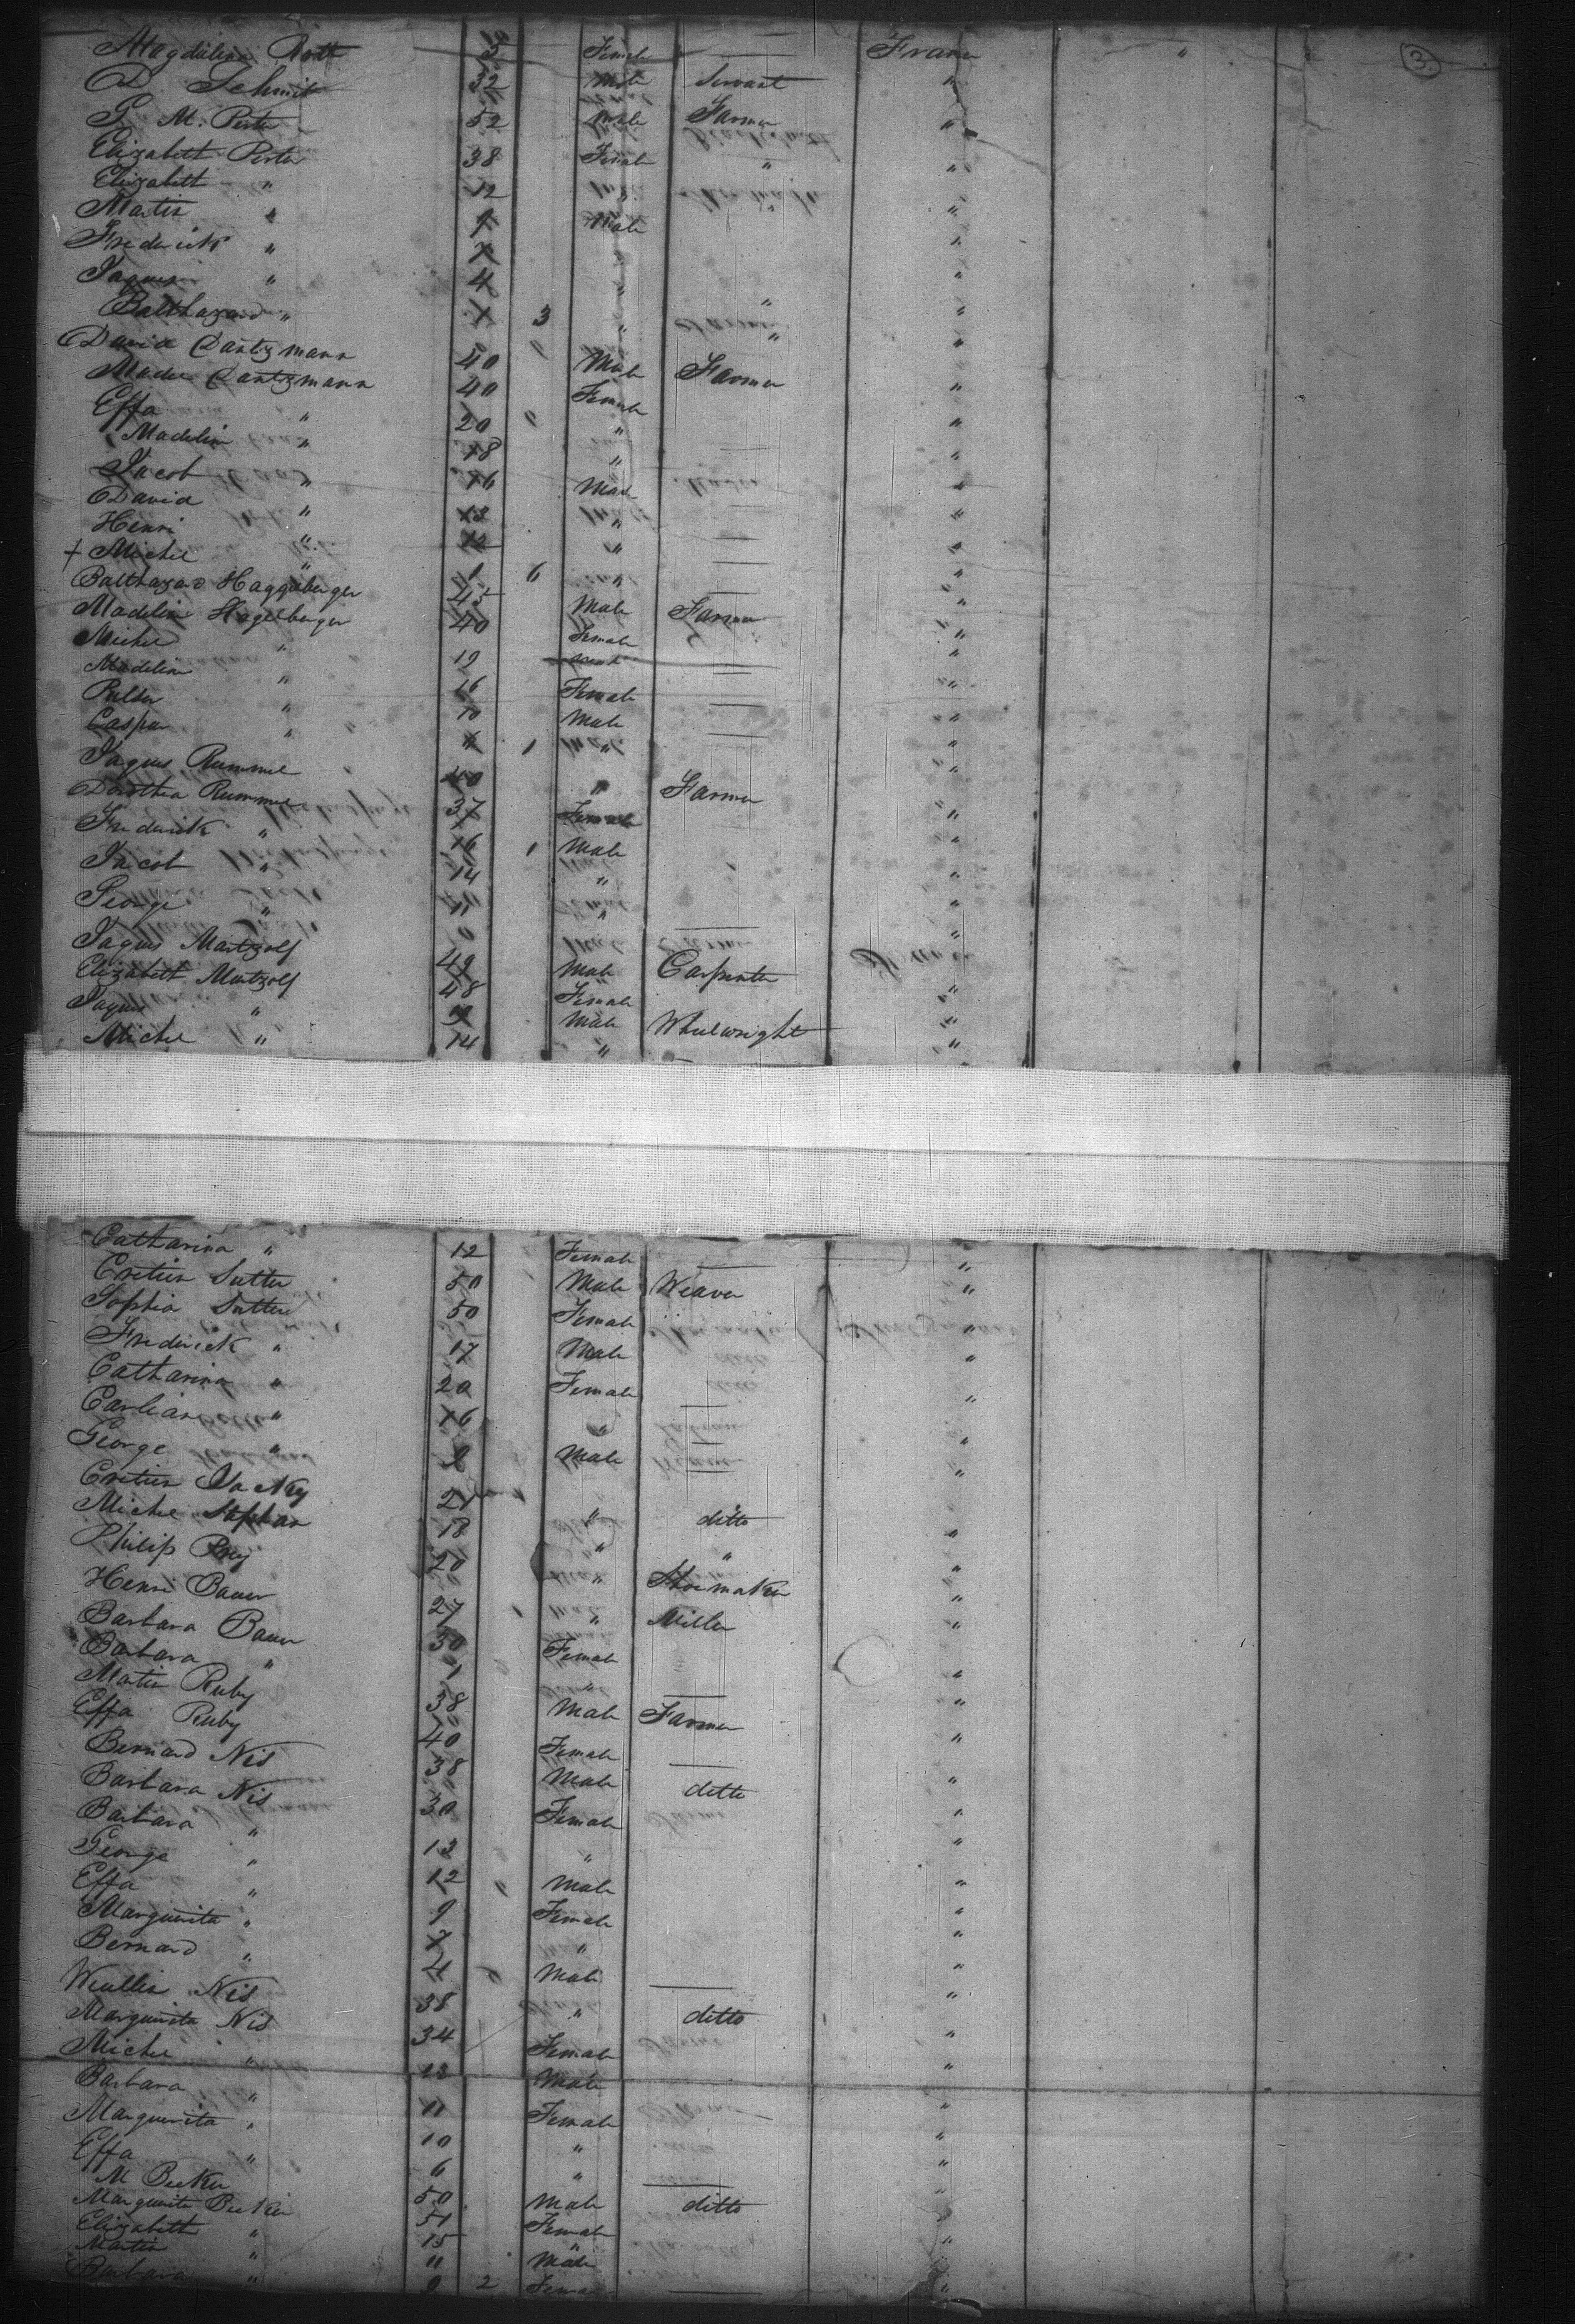 Magdalena Rott 5 Female France " 3
D. Schmit 32 Male Servant "
G. M. Perter 52 Male Farmer "
Elizabeth Perter 38 Female " "
Elizabeth " 12 "
Martin " Male "
Frederick " 7 " "
Jaques " 4 " " "
Balthazard " 3 " " "
David Dantzmann 40 Male Farmer "
Made Dantzmann 40 Female "
Effa " 20 " "
Madelin " 18 " "
Jacob " 16 Male "
David " 13 " "
Henri " 12 " "
+ Michel " 6 " "
Balthazard Haggeberger 45 Male Farmer "
Madelin Hagelberger 40 Female "
Michel " 19 Male "
Madelin " 16 Female "
Pulter " 10 Male "
Caspar " 1 " "
Jaques Rummel 40 " Farmer "
Dorothea Rummel 37 Female "
Frederick " 16 Male "
Jacob " 14 " "
George " 11 " "
Jaques Martzolf 49 Male Carpenter France
Elizabeth Martzolf 48 Female "
Jaques " Male Wheelwright "
Michel " 14 " "
Catharina " 12 Female "
Cretien Sutter 50 Male Weaver "
Sophia Sutter 50 Female "
Frederick " 17 Male "
Catharina " 20 Female "
Carlian " 16 " "
George " Male "
Cretien Jacky 21 " ditto "
Michel Stephan 18 " " "
Philip Prey 20 " Shoemaker "
Henri Bauer 27 " Miller "
Barbara Bauer 30 Female
Barbara " 1 " "
Martin Ruby 38 Male Farmer "
Effa Ruby 40 Female "
Bernard Nis 38 Male ditto "
Barbara Nis 30 Female "
Barbara " 13 " "
George " 12 Male "
Effa " 9 Female "
Marguerita " 7 " "
Bernard " 4 Male "
Wullia Nis 38 " ditto "
Marguerita Nis 34 Female "
Michel " 13 Male "
Barbara " 11 Female "
Marguerita " 10 " "
Effa " 6 " "
M Becker 50 Male ditto "
Marguerita Becker 51 Female
Elizabeth " 15 " "
Martin " 11 Male "
Barbara " 2 Female "